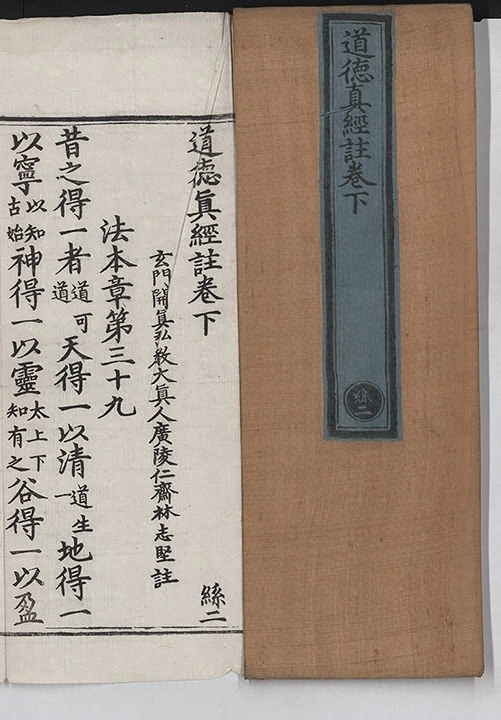 道徳真經註卷下
絲二
道徳眞經註卷下
絲二
玄門開眞弘教大眞人廣陵仁齋林志堅註
法本章第三十九
昔之得一者道可道天得一以清道生一地得一
以寧以知古始神得一以靈太上下知有之谷得一以盈